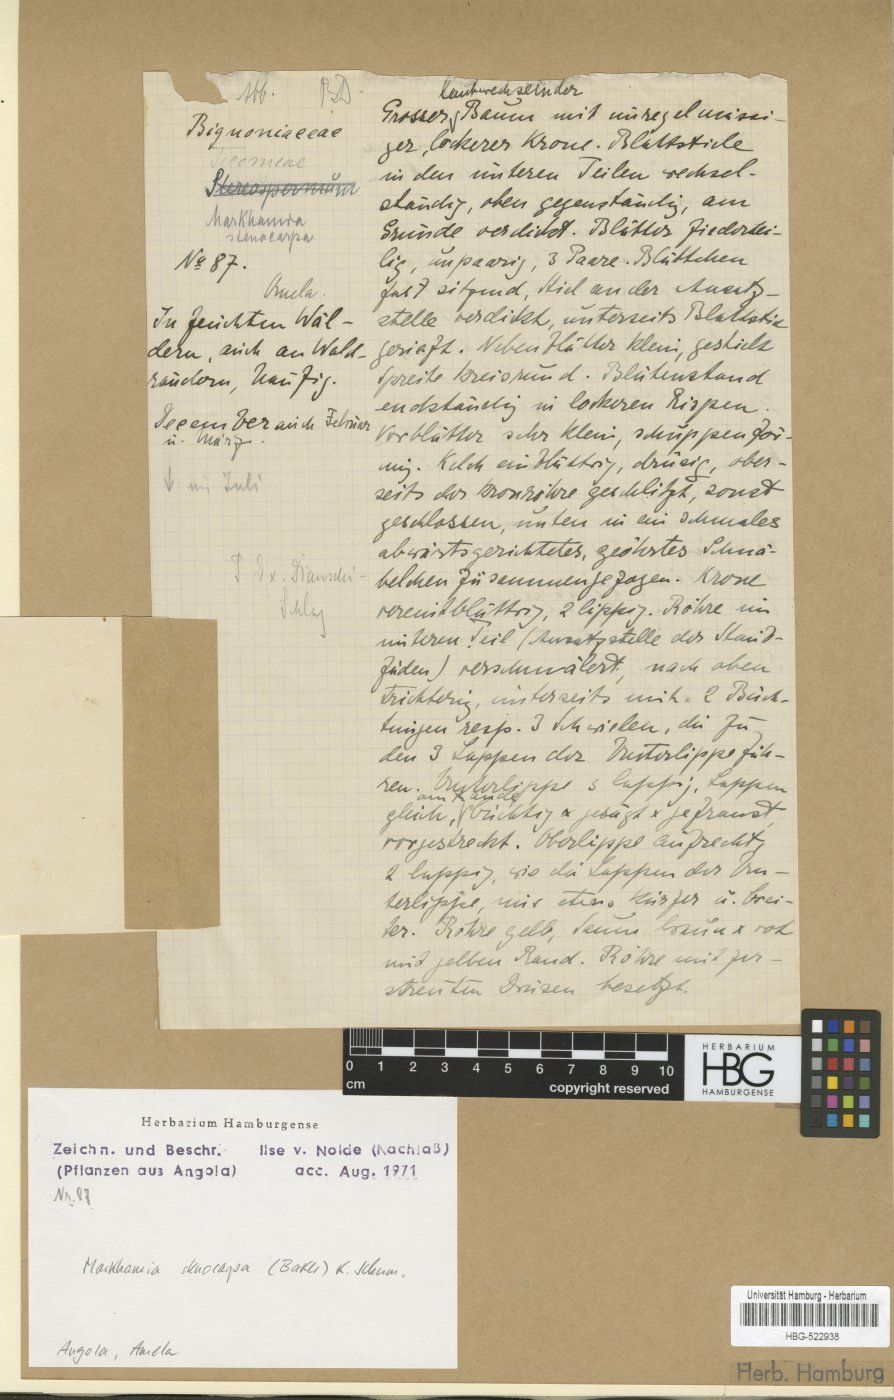 Abb. B.D.
Bignoniaceae
Tecomeae
Stereospermum
Markhamia
stenocarpa
No 87.
Amela.
In feuchten Wäl-
dern, auch an Wald-
rändern, häufig.
Dezember auch Februar
u. März.
↓ im Juli
laubwechselnder
Grosser Baum mit unregelmässi-
ger, lockerer Krone. Blattstiele
in den unteren Teilen wechsel-
ständig, oben gegenständig, am
Grunde verdickt. Blätter fiedertei-
lig, unpaarig, 3 Paare. Blättchen
fast sitzend, Stiel an der Ansatz-
stelle verdickt, unterseits Blattstiel
gerieft. Nebenblätter klein, gestielt
Spreite kreisrund. Blütenstand
endständig in lockeren Rispen.
Vorblätter sehr klein, schuppenför-
mig. Kelch einblättrig, drüsig, ober-
seits der Kronröhre geschlitzt, sonst
geschlossen, unten in ein schmales
abwärtsgerichtetes, geöhrtes Schnä-
belchen zusammengezogen. Krone
vereintblättrig, 2 lippig. Röhre im
unteren Teil (Ansatzstelle der Staub-
fäden) verschmälert, nach oben
trichterig, unterseits mit 2 Buch-
tungen resp. 3 Schwielen, die zu
den 3 Lappen der Unterlippe füh-
ren. Unterlippe 3 lappig, Lappen
am Rande
gleich, buchtig x gesägt x gefranst,
vorgestreckt. Oberlippe aufrecht,
2 lappig, wie die Lappen der Un-
terlippe, nur etwas kürzer u. brei-
ter. Röhre gelb, Saum braun x rot
mit gelben Rand. Röhre mit zer-
streuten Drüsen besetzt.
0 1 2 3 4 5 6 7 8 9 10
cm copyright reserved
HERBARIUM
HBG
HAMBURGENSE
Herbarium Hamburgense
Zeichn. und Beschr. Ilse v. Nolde (Nachlaß)
(Pflanzen aus Angola) acc. Aug. 1971
Nr. 87
Markhamia stenocarpa (Baker) K. Schum.
Angola, Amela
Universität Hamburg - Herbarium
HBG-522938
Herb. Hamburg